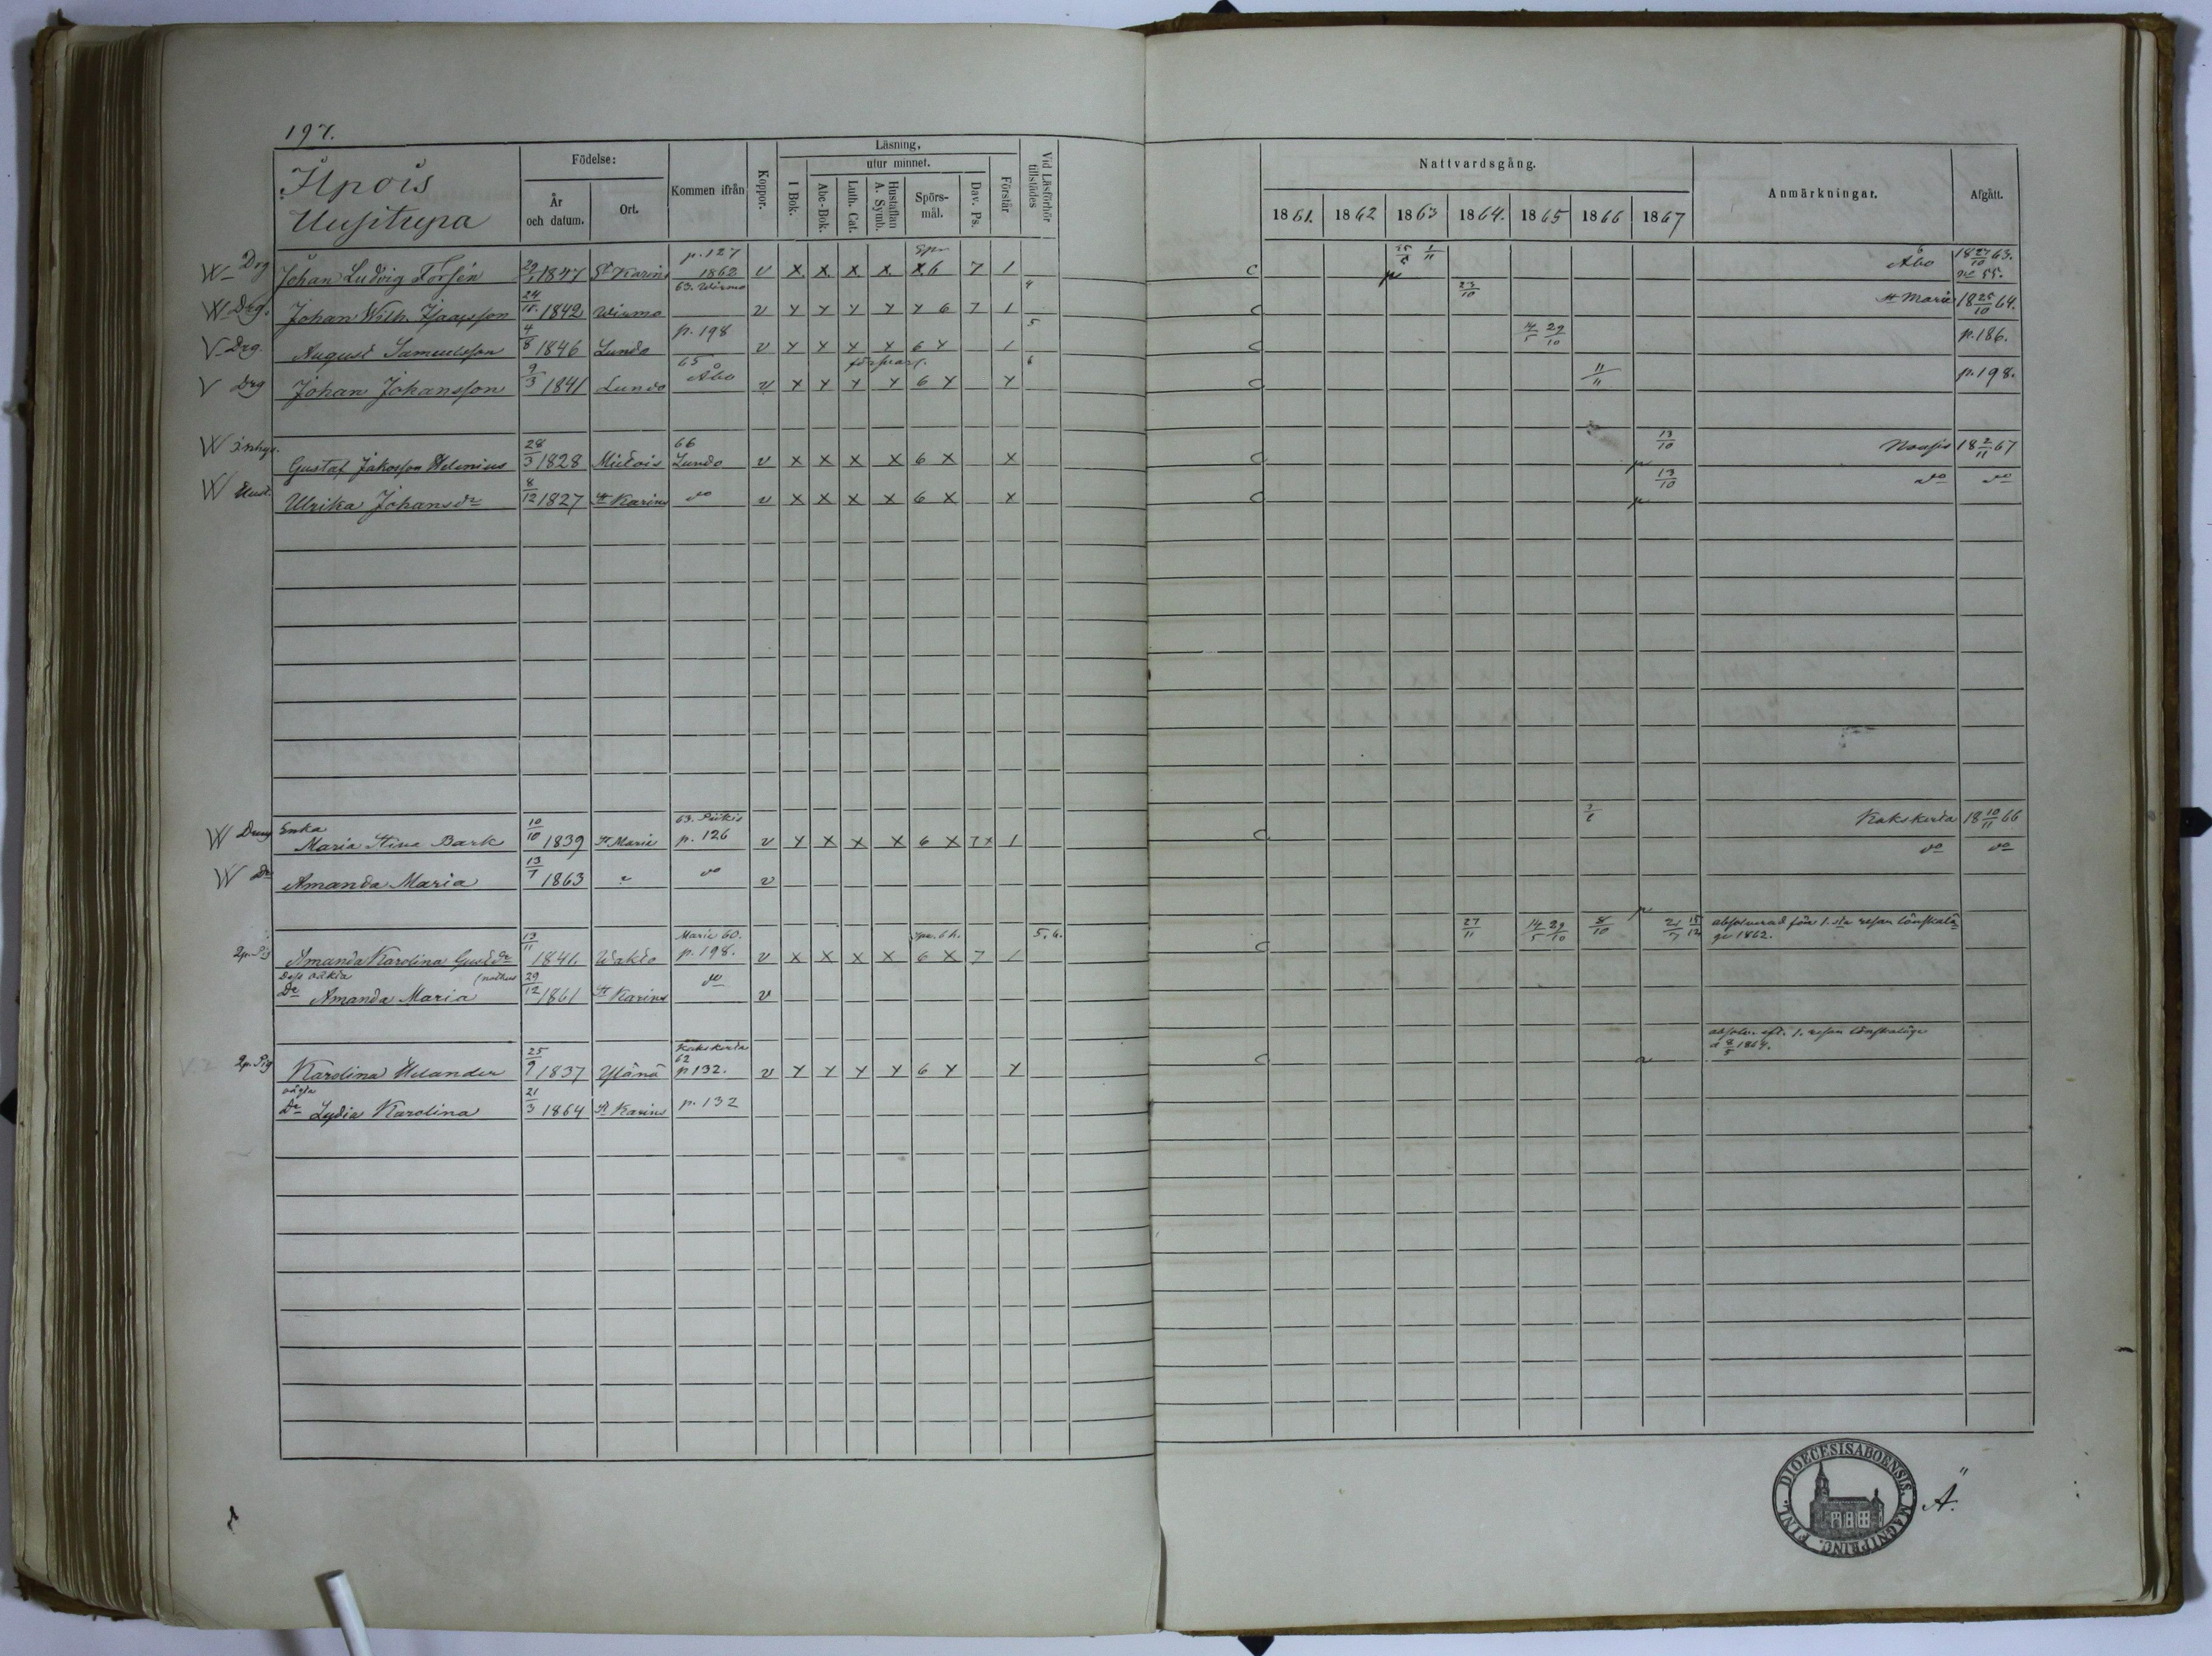 197.
Ilpois
Uusitupa
Födelse:
År och datum.
Ort.
Kommen ifrån
Koppor.
Läsning,
I Bok.
utur minnet.
Abc-Bok.
Luth. Cat.
Hustaflan A. Symb.
Spörs-mål.
Dav. Ps.
Förstår
Vid Läsförhör tillstädes
Nattvardsgång.
1861. 1862 1863 1864. 1865 1866 1867
Anmärkningar.
Afgått.
Drg Johan Ludvig Forsén 1847 St Karins p. 127 1862 v x x x x x 6 7 1 C 1/11 Åbo 18 27/10 63. No 55.
Drg. Johan Wilh. Isaacsson 1842 Wirmo 63. Wirmo v y y y y y 6 7 1 4 C 23/10 St Marie 18 25/10 64.
Drg. August Samuelsson 4/8 1846 Lundo p. 198 v y y y x 6 y 1 5 C 14/5 29/10 p. 186.
Drg Johan Johansson 9/3 1841 Lundo 65 Åbo v x y y y 6 y y 6 C 11/11 p. 198.
Inhys. Gustaf Jakosson Helenius 28/3 1828 Mietois 66 Lundo v x x x x 6 x x C 13/10 Nousis 18 2/11 67
Hust. Ulrika Johansdr 8/12 1827 St Karins do v x x x x 6 x y C 13/10 do do
Enka Maria Stina Bark 10/10 1839 St Marie 63. Piikis p. 126 v y x x x 6 x 7 x 1 C Kakskerta 18 10/11 66
Dr Amanda Maria 13/7 1863 do v do do
Amanda Karolina Gustdr 13/11 1841. Wahto Marie 60. p. 198. v x x x x 6 x 7 1 5. 6. C 27/11 14/5 29/10 8/10 absolverad för 1.sta resan lönskalä-
ge 1862.
Dess oäkta
Dr Amanda Maria 29/12 1861 St Karins do v
absolv. eft. 1. resan lönskaläge
d 8/5 1864.
Karolina Helander 25/9 1837 Yläne Kakskerta 62 p 132. v y y y y 6 y y C
oägta
Dr Lydia Karolina 21/3 1864 St Karins p. 132
DIOECESIS ABOENSIS. MAGNI PRINC. FINL.
Ä.